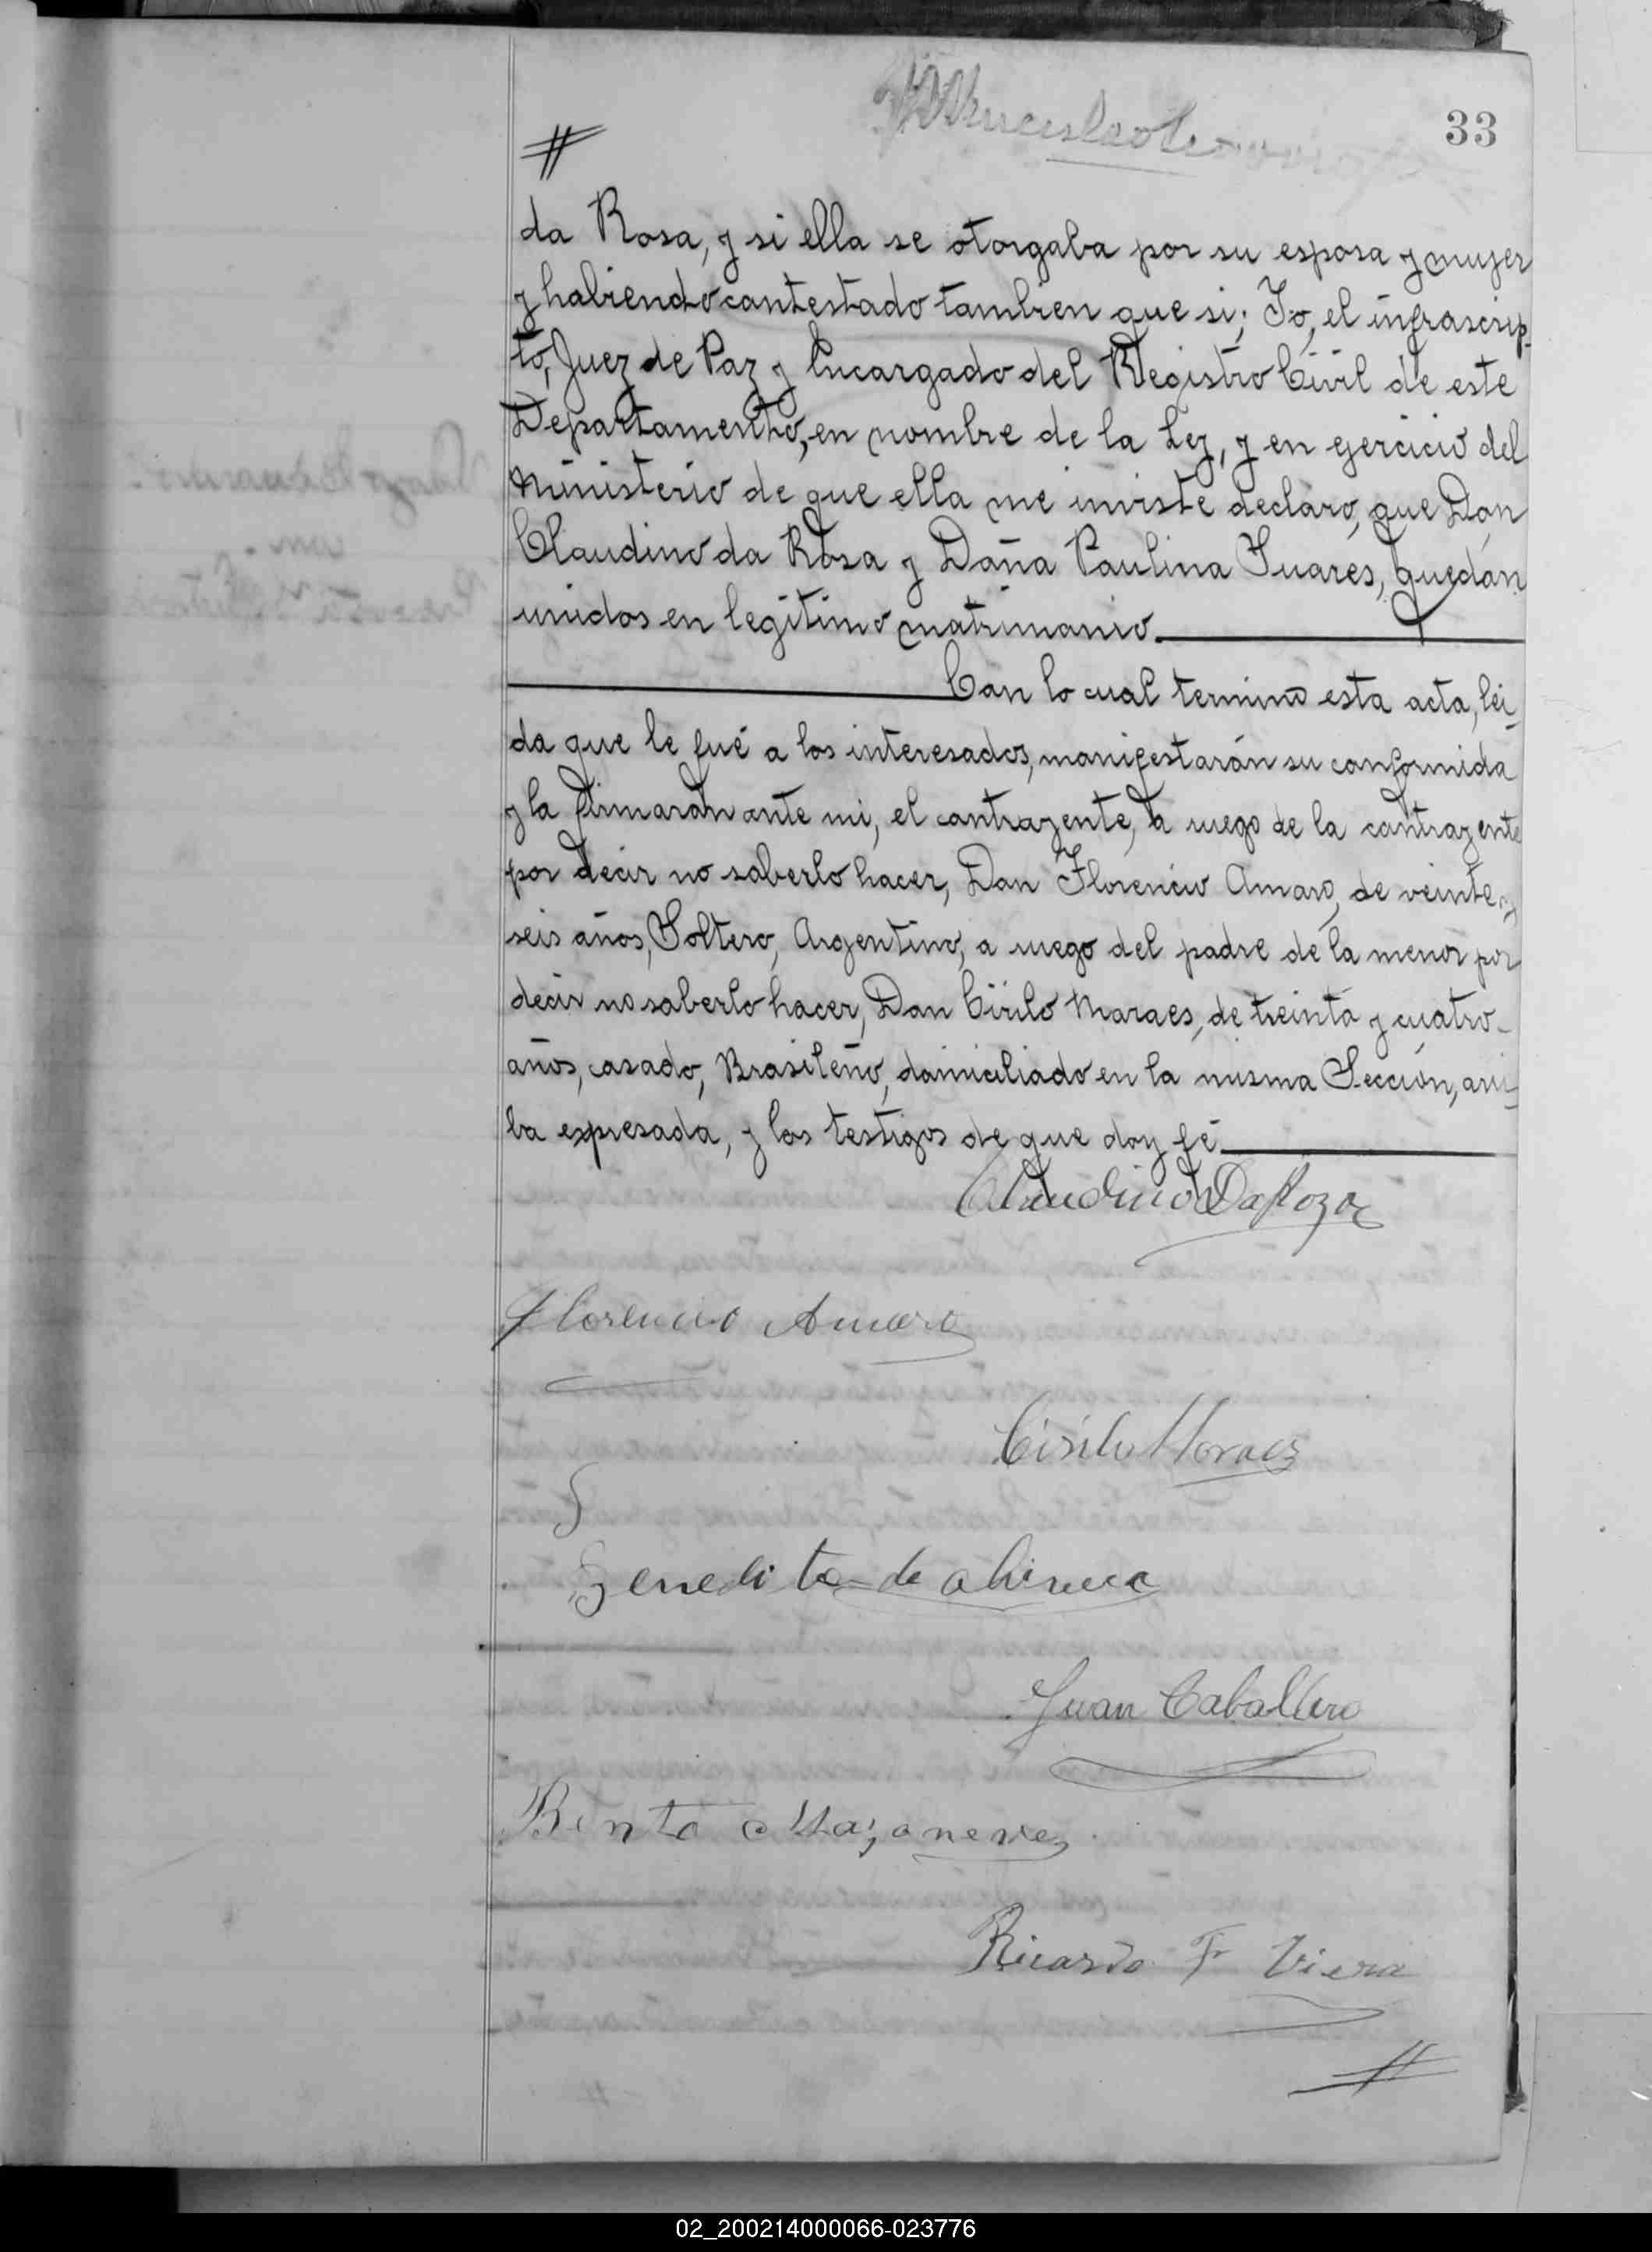 33
da Rosa, y si ella se otorgaba por su esposa y mujer
y habiendo contestado tambien que si; Yo, el infrascrip-
to, Juez de Paz y Encargado del Registro Civil de este
Departamento, en nombre de la Ley, y en ejercicio del
Ministerio de que ella me inviste declaro, que Don
Claudino da Rosa y Doña Paulina Suares, quedan
unidos en legitimo matrimonio.
Con lo cual termino esta acta, lei-
da que le fué a los interesados, manifestarón su conformida
y la firmarón ante mi, el contrayente, a ruego de la contrayente
por decir no saberlo hacer, Don Florencio Amaro, de veinte y
seis años, Soltero, Argentino, a ruego del padre de la menor por
decir no saberlo hacer, Don Cirilo Moraes, de treinta y cuatro
años, casado, Brasileño, domiciliado en la misma Sección, arri-
ba expresada, y los testigos de que doy fé
Claudino Da Roza
Florencio Amaro
Cirilo Moraes
de
Juan Caballero
Bento
Ricardo F Viera
02_200214000066-023776